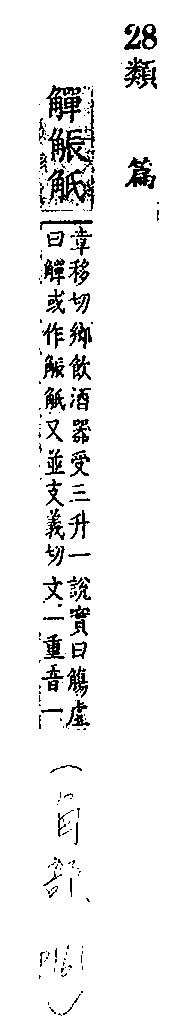 28類 篇
觶䚨觗
章移切鄉飲酒器受三升一說實曰觴虛
曰觶或作䚨觗又並支義切文二重音一
(角部, P161)